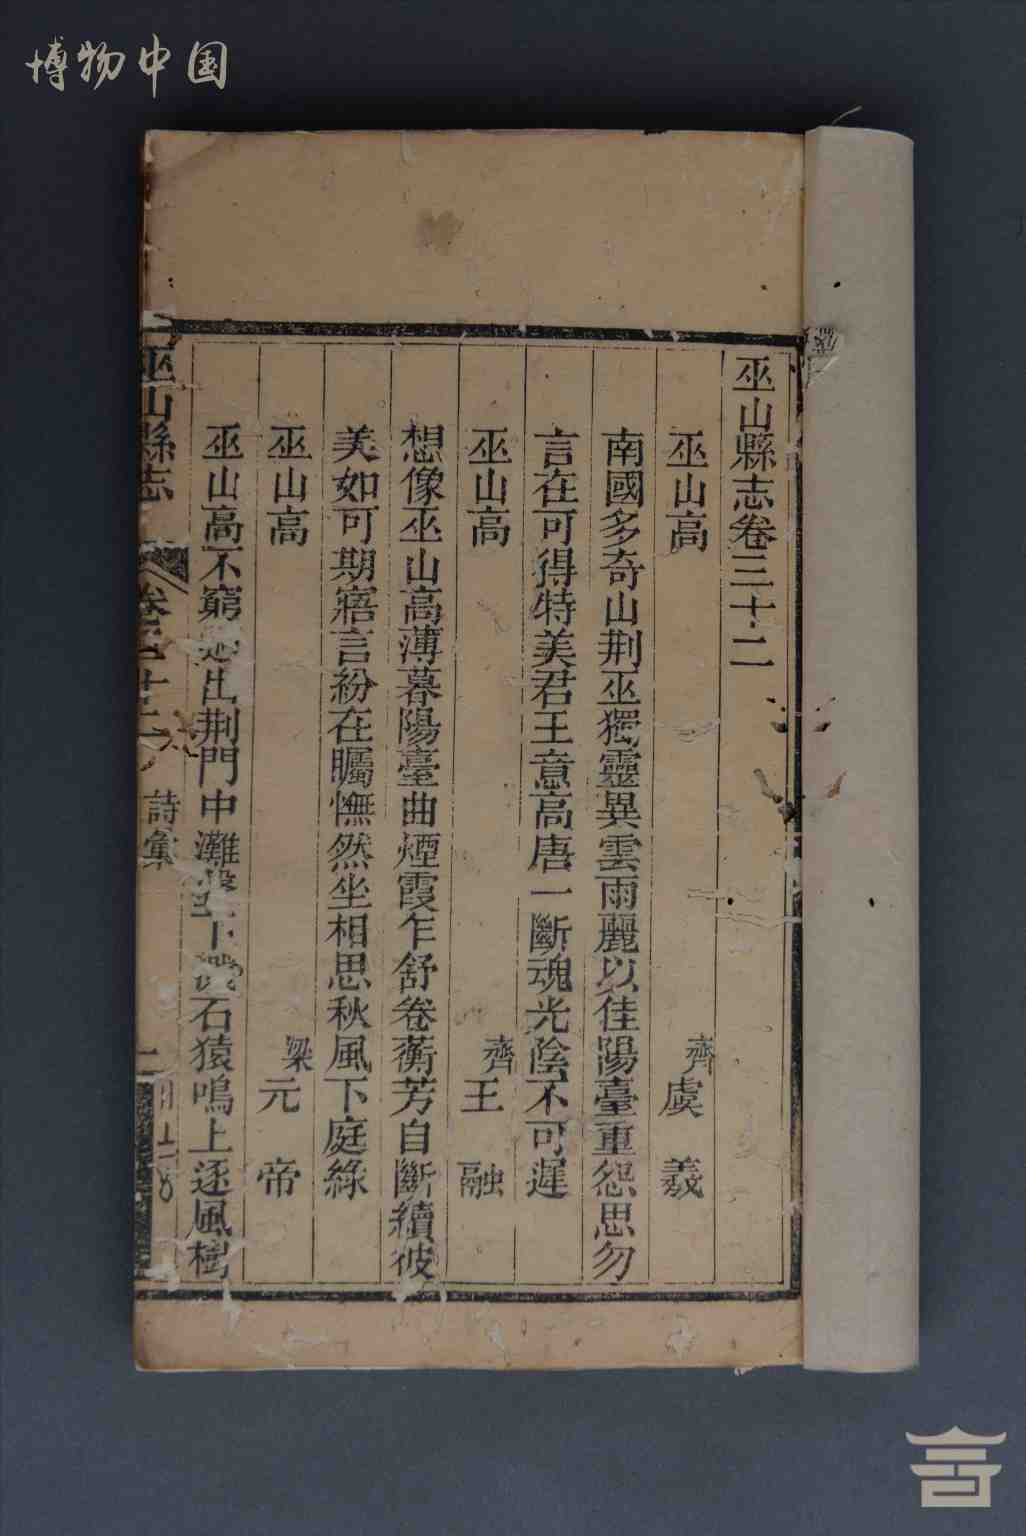 博物中国
巫山縣志卷三十二
巫山高 齊虞羲
南國多奇山荆巫獨靈異雲雨麗以佳陽臺重怨思勿
言在可得特美君王意高唐一斷魂光陰不可遲
巫山高 齊王融
想像巫山高薄暮陽臺曲煙霞乍舒卷蘅芳自斷續彼
美如可期寤言紛在矚憮然坐相思秋風下庭綠
巫山高 梁元帝
巫山高不窮 出荆門中灘 下 石猿鳴上逐風樹
巫山縣志 卷三十二 詩彙